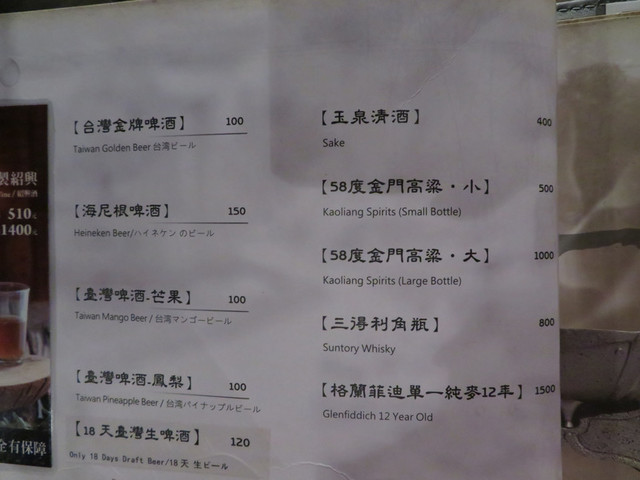 【台灣金牌啤酒】 100
Taiwan Golden Beer 台湾ビール
【海尼根啤酒】 150
Heineken Beer/ハイネケン のビール
【臺灣啤酒-芒果】 100
Taiwan Mango Beer / 台湾マンゴービール
【臺灣啤酒-鳳梨】 100
Taiwan Pineapple Beer / 台湾パイナップルビール
【18 天臺灣生啤酒】 120
Only 18 Days Draft Beer/18天 生ビール
【玉泉清酒】 400
Sake
【58度金門高粱・小】 500
Kaoliang Spirits (Small Bottle)
【58度金門高粱・大】 1000
Kaoliang Spirits (Large Bottle)
【三得利角瓶】 800
Suntory Whisky
【格蘭菲迪單一純麥12年】 1500
Glenfiddich 12 Year Old
製紹興
/ 紹興酒
510元
1400元
全有保障